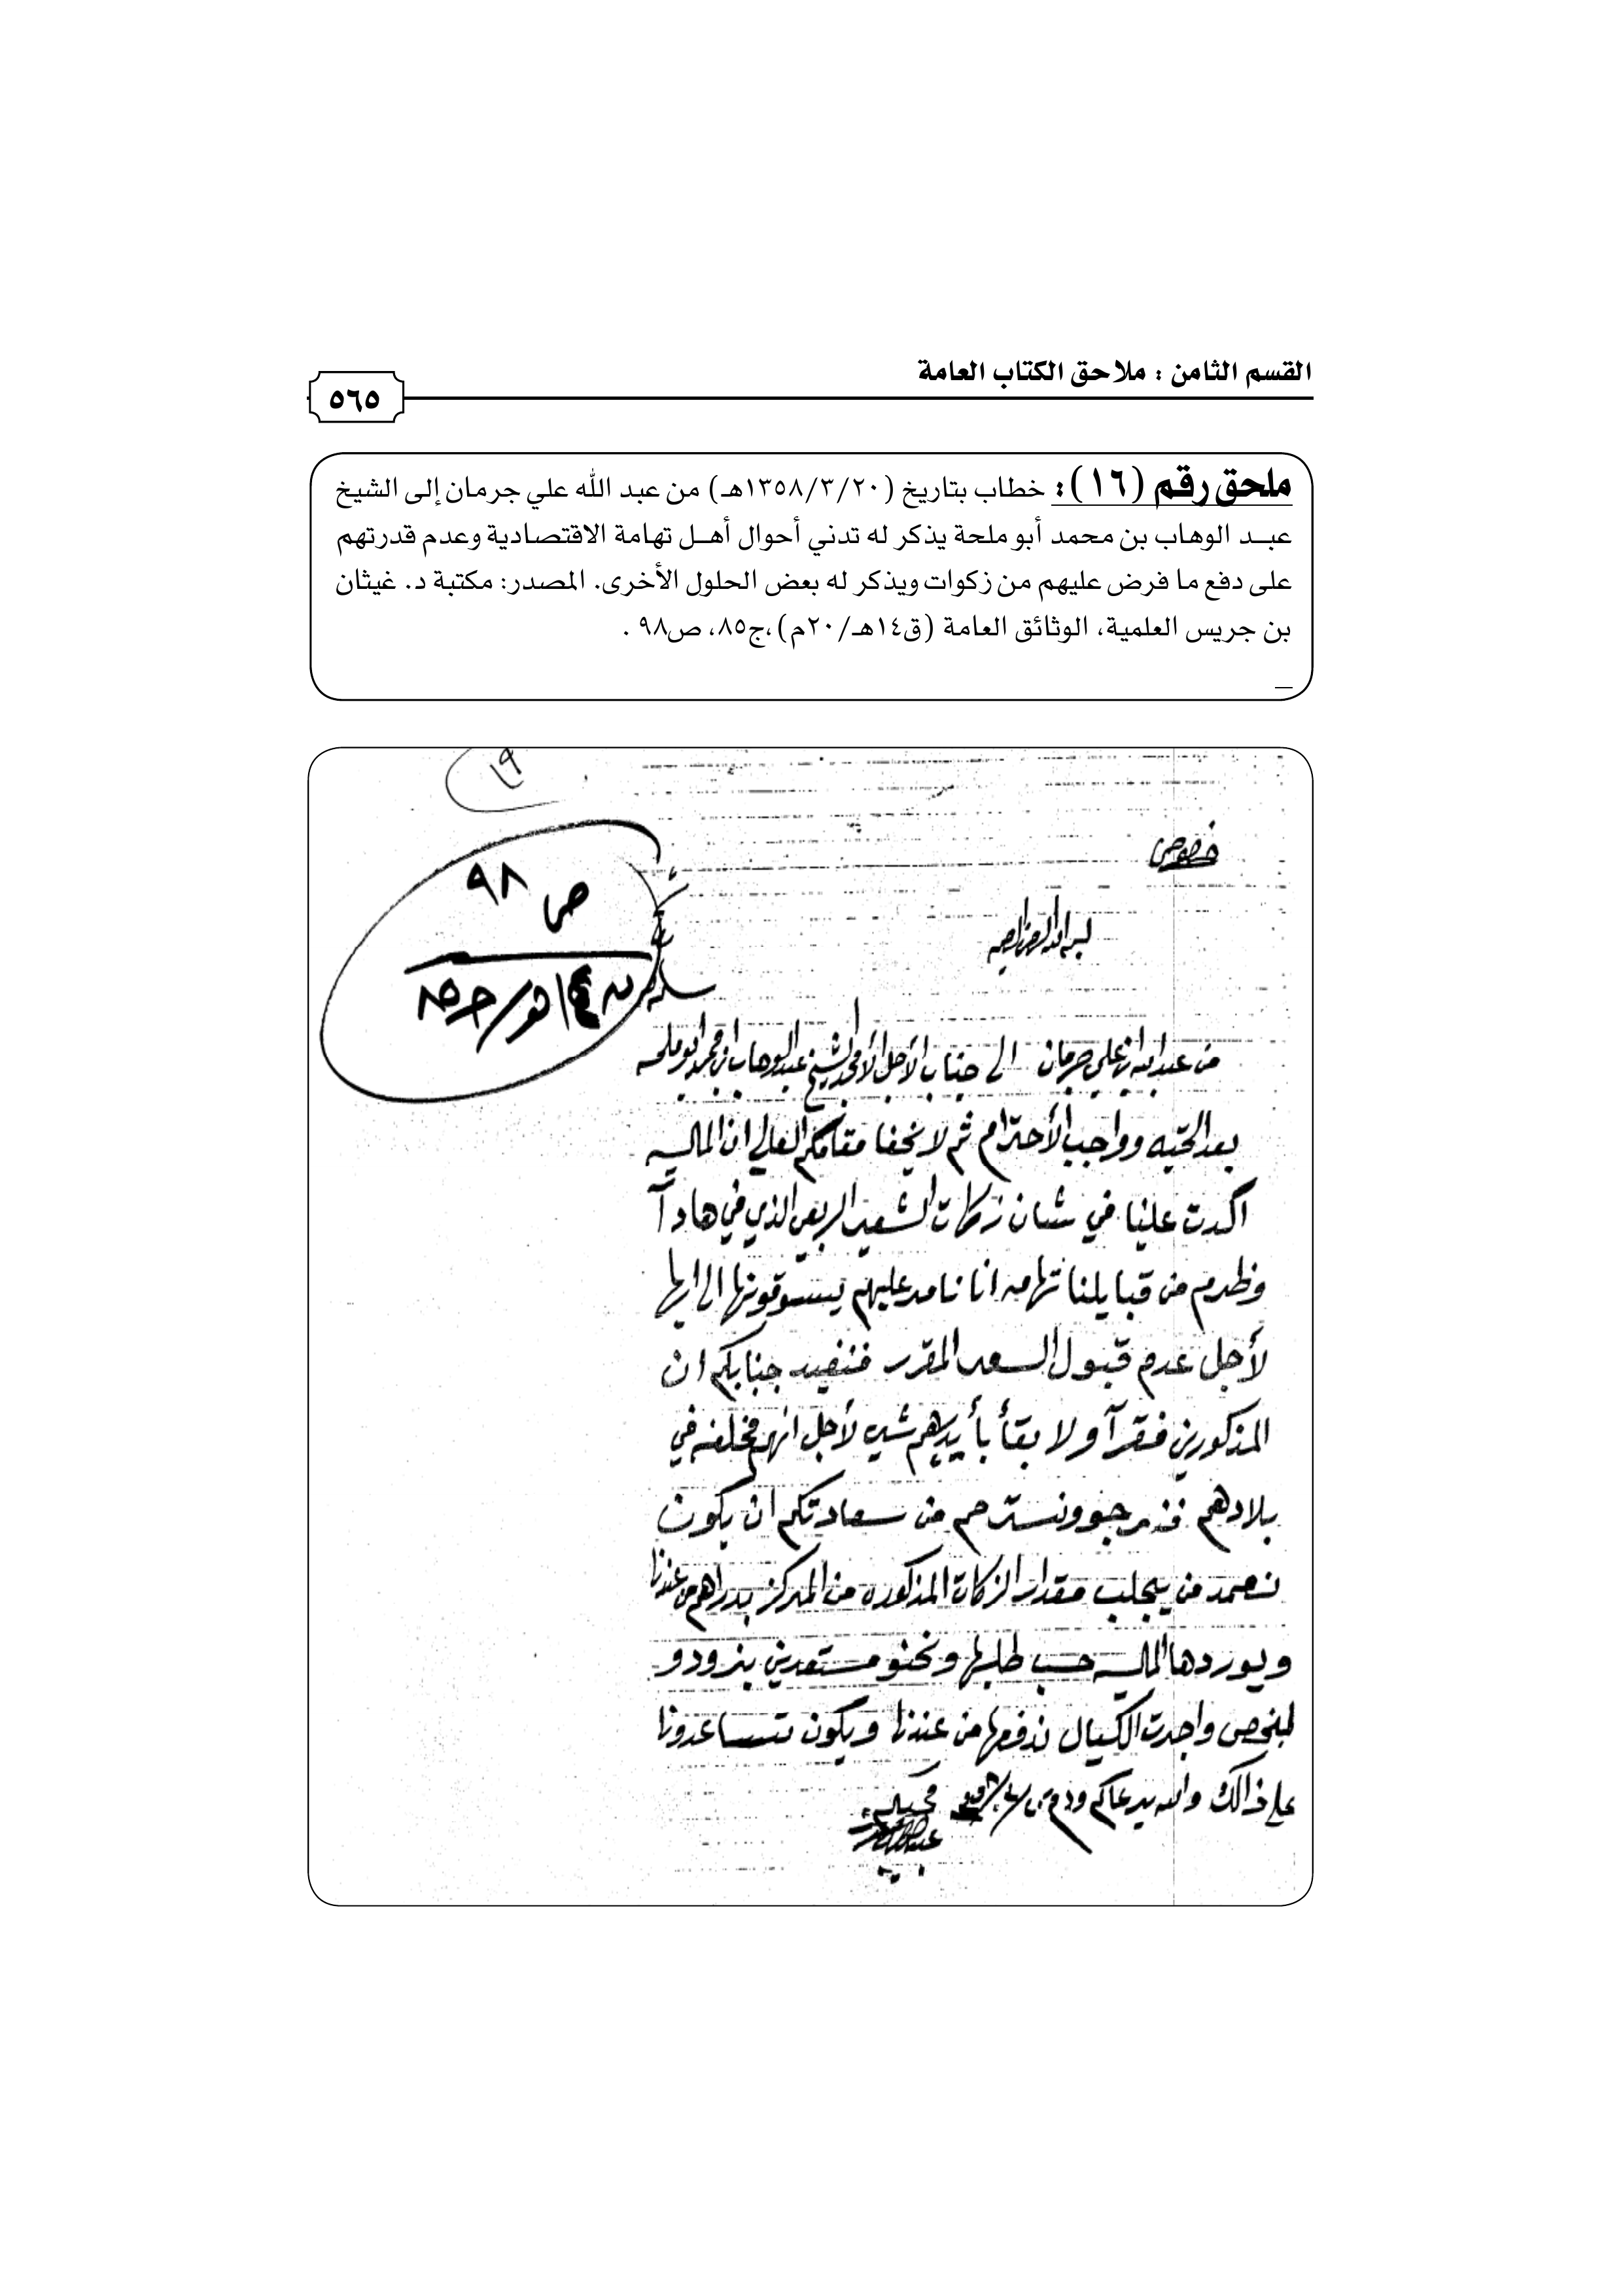 القسم الثامن : ملاحق الكتاب العامة
٥٦٥
ملحق رقم (١٦): خطاب بتاريخ (١٣٥٨/٣/٢٠هـ) من عبد الله علي جرمان إلى الشيخ
عبــد الوهاب بن محمد أبو ملحة يذكر له تدني أحوال أهــل تهامة الاقتصادية وعدم قدرتهم
على دفع ما فرض عليهم من زكوات ويذكر له بعض الحلول الأخرى. المصدر: مكتبة د. غيثان
بن جريس العلمية، الوثائق العامة (ق١٤هـ/٢٠م)،ج٨٥، ص٩٨ .
_
١٩
خصوصي
ص ٩٨
ق ١٤هـ/ج٨٥
من عبدالله بن علي جرمان الى جناب الأجل الأمجد الشيخ عبدالوهاب ابن محمد ابو ملحه
بعد التحيه وواجب الأحترام ثم لا يخفا مقامكم العالي ان الماليه
اكدت علينا في شان زكات الشعير الربعي الذي في هاد آ
من قبايلنا تهامه انا نامر عليهم يسوقونها الى ابها
لأجل عدم قبول السعر المقرر فنفيد جنابكم ان
المذكورين فقرآ ولا بقأ بأيديهم شي لأجل انهم في
بلادهم فنرجو ونسترحم من سعادتكم ان يكون
نعمد من يجلب مقدار الزكات المذكوره من المركز بدراهم من عندنا
ويوردها الماليه حسب طلبها ونحنو مستعدين
واجرت الكيال ندفعها من عندنا ويكون تساعدونا
على ذالك والله يرعاكم